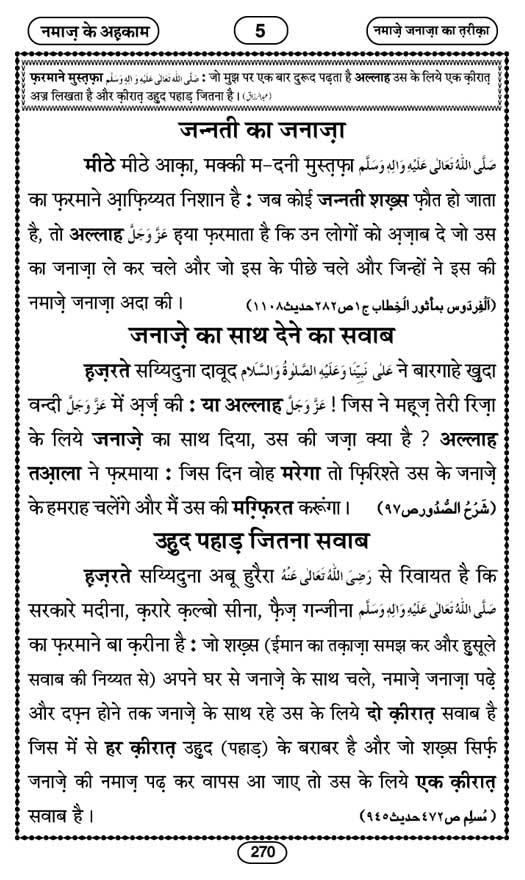 नमाज़ के अह़काम
5
नमाज़े जनाज़ा का त़रीक़ा
फ़रमाने मुस्त़फ़ा صَلَّى اللهُ تَعَالٰى عَلَيْهِ وَاٰلِهٖ وَسَلَّم : जो मुझ पर एक बार दुरूद पढ़ता है अल्लाह उस के लिये एक क़ीरात़
अज्र लिखता है और क़ीरात़ उहुद पहाड़ जितना है। (عبدالرزاق)
जन्नती का जनाज़ा
मीठे मीठे आक़ा, मक्की म-दनी मुस्त़फ़ा صَلَّى اللهُ تَعَالٰى عَلَيْهِ وَاٰلِهٖ وَسَلَّم
का फ़रमाने आ़फ़िय्यत निशान है : जब कोई जन्नती शख़्स फ़ौत हो जाता
है, तो अल्लाह عَزَّ وَجَلَّ ह़या फ़रमाता है कि उन लोगों को अ़ज़ाब दे जो उस
का जनाज़ा ले कर चले और जो इस के पीछे चले और जिन्हों ने इस की
नमाज़े जनाज़ा अदा की। (اَلْفِرْدَوْس بمأثور الْخِطاب ج١ص٢٨٢حديث١١٠٨)
जनाज़े का साथ देने का सवाब
ह़ज़रते सय्यिदुना दावूद عَلٰى نَبِيِّنَا وَعَلَيْهِ الصَّلٰوةُ وَالسَّلَام ने बारगाहे ख़ुदा
वन्दी عَزَّ وَجَلَّ में अ़र्ज़ की : या अल्लाह عَزَّ وَجَلَّ ! जिस ने मह़्ज़ तेरी रिज़ा
के लिये जनाज़े का साथ दिया, उस की जज़ा क्या है ? अल्लाह
तआ़ला ने फ़रमाया : जिस दिन वोह मरेगा तो फ़िरिश्ते उस के जनाज़े
के हमराह चलेंगे और मैं उस की मग़्फ़िरत करूंगा। (شَرْحُ الصُّدُور ص٩٧)
उहुद पहाड़ जितना सवाब
ह़ज़रते सय्यिदुना अबू हुरैरा رَضِىَ اللهُ تَعَالٰى عَنْهُ से रिवायत है कि
सरकारे मदीना, क़रारे क़ल्बो सीना, फ़ैज़ गन्जीना صَلَّى اللهُ تَعَالٰى عَلَيْهِ وَاٰلِهٖ وَسَلَّم
का फ़रमाने बा क़रीना है : जो शख़्स (ईमान का तक़ाज़ा समझ कर और हुसूले
सवाब की निय्यत से) अपने घर से जनाज़े के साथ चले, नमाज़े जनाज़ा पढ़े
और दफ़्न होने तक जनाज़े के साथ रहे उस के लिये दो क़ीरात़ सवाब है
जिस में से हर क़ीरात़ उहुद (पहाड़) के बराबर है और जो शख़्स सिर्फ़
जनाज़े की नमाज़ पढ़ कर वापस आ जाए तो उस के लिये एक क़ीरात़
सवाब है। (مُسلِم ص٤٧٢حديث٩٤٥)
270